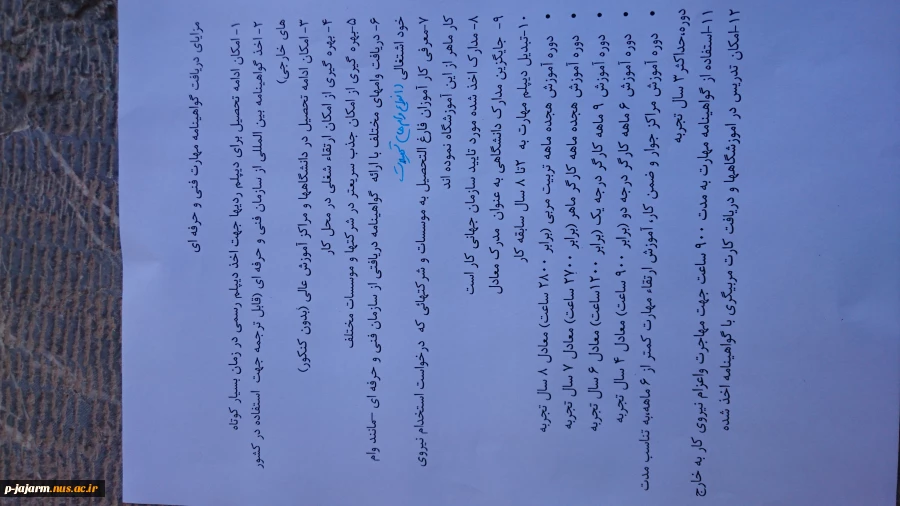 مزایای دریافت گواهینامه مهارت فنی و حرفه ای
۱- امکان ادامه تحصیل برای دیپلم ردیها جهت اخذ دیپلم رسمی در زمان بسیار کوتاه
۲- اخذ گواهینامه بین المللی از سازمان فنی و حرفه ای (قابل ترجمه جهت استفاده در کشور
های خارجی)
۳- امکان ادامه تحصیل در دانشگاهها و مراکز آموزش عالی (بدون کنکور)
۴- بهره گیری از امکان ارتقاء شغلی در محل کار
۵-بهره گیری از امکان جذب سریعتر در شرکتها و موسسات مختلف
۶- دریافت وامهای مختلف با ارائه گواهینامه دریافتی از سازمان فنی و حرفه ای –مانند وام
خود اشتغالی
۷-معرفی کار آموزان فارغ التحصیل به موسسات و شرکتهائی که درخواست استخدام نیروی
کار ماهر از این آموزشگاه نموده اند
۸- مدارک اخذ شده مورد تایید سازمان جهانی کار است
۹- جایگزین مدارک دانشگاهی به عنوان مدرک معادل
۱۰-تبدیل دیپلم مهارت به ۲ تا ۸ سال سابقه کار
• دوره آموزش هجده ماهه تربیت مربی (برابر ۲۸۰۰ ساعت) معادل ۸ سال تجربه
• دوره آموزش هجده ماهه کارگر ماهر (برابر ۲۷۰۰ ساعت) معادل ۷ سال تجربه
• دوره آموزش ۹ ماهه کارگر درجه یک (برابر ۱۲۰۰ساعت) معادل ۶ سال تجربه
• دوره آموزش ۶ ماهه کارگر درجه دو (برابر ۹۰۰ ساعت) معادل ۴ سال تجربه
• دوره آموزش مراکز جوار و ضمن کار، آموزش ارتقاء مهارت کمتر از ۶ ماهه،به تناسب مدت
دوره،حداکثر ۳ سال تجربه
۱۱-استفاده از گواهینامه مهارت به مدت ۹۰۰ ساعت جهت مهاجرت واعزام نیروی کار به خارج
۱۲-امکان تدریس در اموزشگاهها و دریافت کارت مربیگری با گواهینامه اخذ شده
p-jajarm.nus.ac.ir